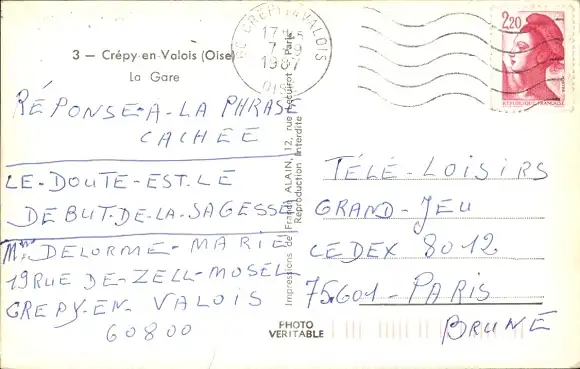 3 — Crépy-en-Valois (Oise)
La Gare
RÉPONSE-A-LA PHRASE
CACHÉE
LE-DOUTE-EST-LE
DEBUT-DE-LA-SAGESSE
Mme DELORME-MARIE
19 RUE DE-ZELL-MOSEL
CREPY-EN-VALOIS
60800
60 CREPY EN VALOIS
17H15
7-9
1987
OISE
2,20
REPUBLIQUE FRANÇAISE
Impressions de France ALAIN, 12, rue
Reproduction Interdite
TÉLÉ-LOISIRS
GRAND-JEU
CEDEX 8012
75601-PARIS
BRUNE
PHOTO
VERITABLE